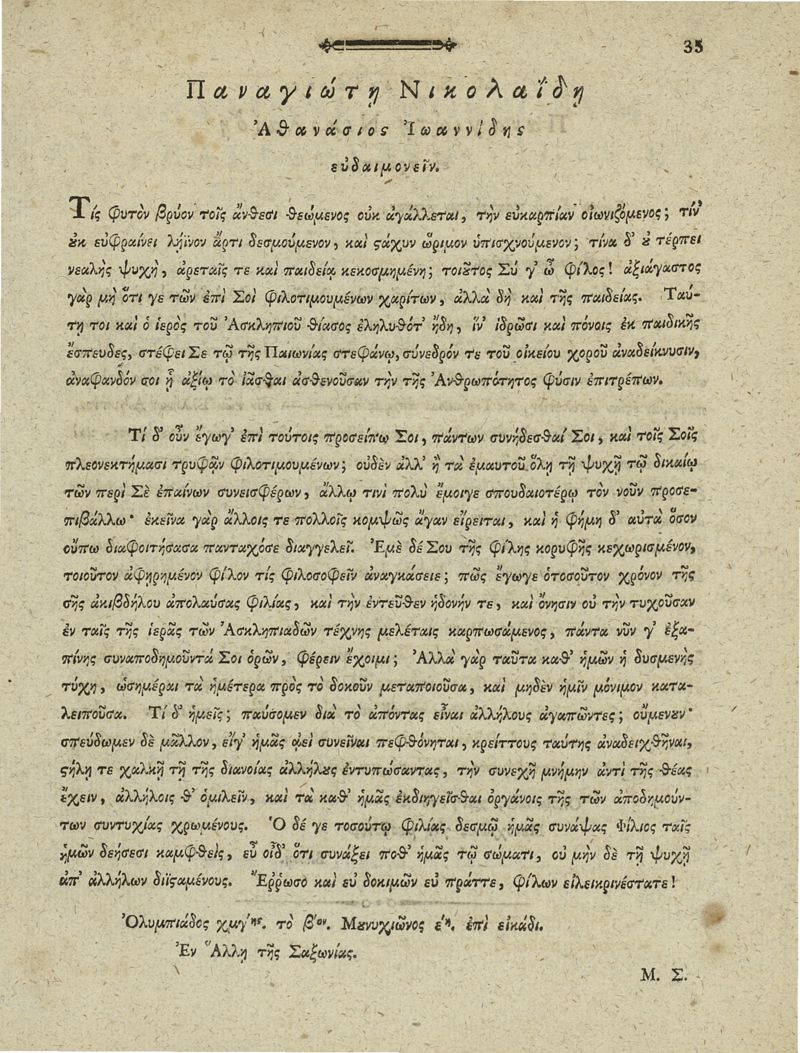 35
Παναγιώτῃ Νικολαΐδῃ
Ἀθανάσιος Ἰωαννίδης
εὐδαιμονεῖν.
Τίς φυτὸν βρύον τοῖς ἄνθεσι θεώμενος οὐκ ἀγάλλεται, τὴν εὐκαρπίαν οἰωνιζόμενος; τίν'
ȣκ εὐφραίνει λήϊνον ἄρτι δεσμούμενον, καὶ ϛάχυν ὥριμον ὑπισχνούμενον; τίνα δ' ȣ τέρπει
νεαλὴς ψυχὴ, ἀρεταῖς τε καὶ παιδείᾳ κεκοσμημένη; τοιȣτος Σύ γ' ὦ φίλος! ἀξιάγαστος
γὰρ μὴ ὅτι γε τῶν ἐπὶ Σοὶ φιλοτιμουμένων χαρίτων, ἀλλὰ δὴ καὶ τῆς παιδείας. Ταύ-
τῃ τοι καὶ ὁ ἱερὸς τοῦ Ἀσκληπιοῦ θίασος ἐληλυθότ' ἤδη, ἵν' ἱδρῶσι καὶ πόνοις ἐκ παιδικῆς
ἔσπευδες, στέφει Σε τῷ τῆς Παιωνίας στεφάνῳ, σύνεδρόν τε τοῦ οἰκείου χοροῦ ἀναδείκνυσιν,
ἀναφανδόν σοι ᾗ ἀξίῳ τὸ ἰᾶσθαι ἀσθενοῦσαν τὴν τῆς Ἀνθρωπότητος φύσιν ἐπιτρέπων.
Τί δ' οὖν ἔγωγ' ἐπὶ τούτοις προσείπω Σοι, πάντων συνήδεσθαί Σοι, καὶ τοῖς Σοῖς
πλεονεκτήμασι τρυφᾷν φιλοτιμουμένων; οὐδὲν ἀλλ' ἢ τὰ ἐμαυτοῦ ὅλῃ τῇ ψυχῇ τῷ δικαίῳ
τῶν περὶ Σὲ ἐπαίνων συνεισφέρων, ἄλλῳ τινὶ πολύ ἔμοιγε σπουδαιοτέρῳ τὸν νοῦν προσε-
πιβάλλω· ἐκεῖνα γὰρ ἄλλοις τε πολλοῖς κομψῶς ἄγαν εἴρειται, καὶ ἡ φήμη δ' αὐτὰ ὅσον
οὔπω διαφοιτήσασα πανταχόσε διαγγελεῖ. Ἐμὲ δέ Σου τῆς φίλης κορυφῆς κεχωρισμένον,
τοιοῦτον ἀφῃρημένον φίλον τίς φιλοσοφεῖν ἀναγκάσειε; πῶς ἔγωγε ὁτοσοῦτον χρόνον τῆς
σῆς ἀκιβδήλου ἀπολαύσας φιλίας, καὶ τὴν ἐντεῦθεν ἡδονήν τε, καὶ ὄνησιν οὐ τὴν τυχοῦσαν
ἐν ταῖς τῆς ἱερᾶς τῶν Ἀσκληπιαδῶν τέχνης μελέταις καρπωσάμενος, πάντα νῦν γ' ἐξα-
πίνης συναποδημοῦντά Σοι ὁρῶν, φέρειν ἔχοιμι; Ἀλλὰ γὰρ ταῦτα καθ' ἡμῶν ἡ δυσμενὴς
τύχη, ὡσημέραι τὰ ἡμέτερα πρὸς τὸ δοκοῦν μεταποιοῦσα, καὶ μηδὲν ἡμῖν μόνιμον κατα-
λειποῦσα. Τί δ' ἡμεῖς; παύσομεν διὰ τὸ ἀπόντας εἶναι ἀλλήλους ἀγαπῶντες; οὔμενȣν·
σπεύδωμεν δὲ μᾶλλον, εἴγ' ἡμᾶς ᾀεὶ συνεῖναι πεφθόνηται, κρείττους ταύτης ἀναδειχθῆναι,
ϛήλῃ τε χαλκῇ τῇ τῆς διανοίας ἀλλήλȣς ἐντυπώσαντας, τὴν συνεχῆ μνήμην ἀντὶ τῆς θέας
ἔχειν, ἀλλήλοις θ' ὁμιλεῖν, καὶ τὰ καθ' ἡμᾶς ἐκδιηγεῖσθαι ὀργάνοις τῆς τῶν ἀποδημούν-
των συντυχίας χρωμένους. Ὁ δέ γε τοσούτῳ φιλίας δεσμῷ ἡμᾶς συνάψας Φίλιος ταῖς
ἡμῶν δεήσεσι καμφθεὶς, εὖ οἶδ' ὅτι συνάξει ποθ' ἡμᾶς τῷ σώματι, οὐ μὴν δὲ τῇ ψυχῇ
ἀπ' ἀλλήλων διϊϛαμένους. Ἔῤῥωσο καὶ εὐ δοκιμῶν εὐ πράττε, φίλων εἰλεικρινέστατε!
Ὀλυμπιάδος χμγ'ης. τὸ β'ον. Μȣνυχιῶνος έῃ. ἐπὶ εἰκάδι.
Ἐν Ἅλλῃ τῆς Σαξωνίας.
Μ. Σ.